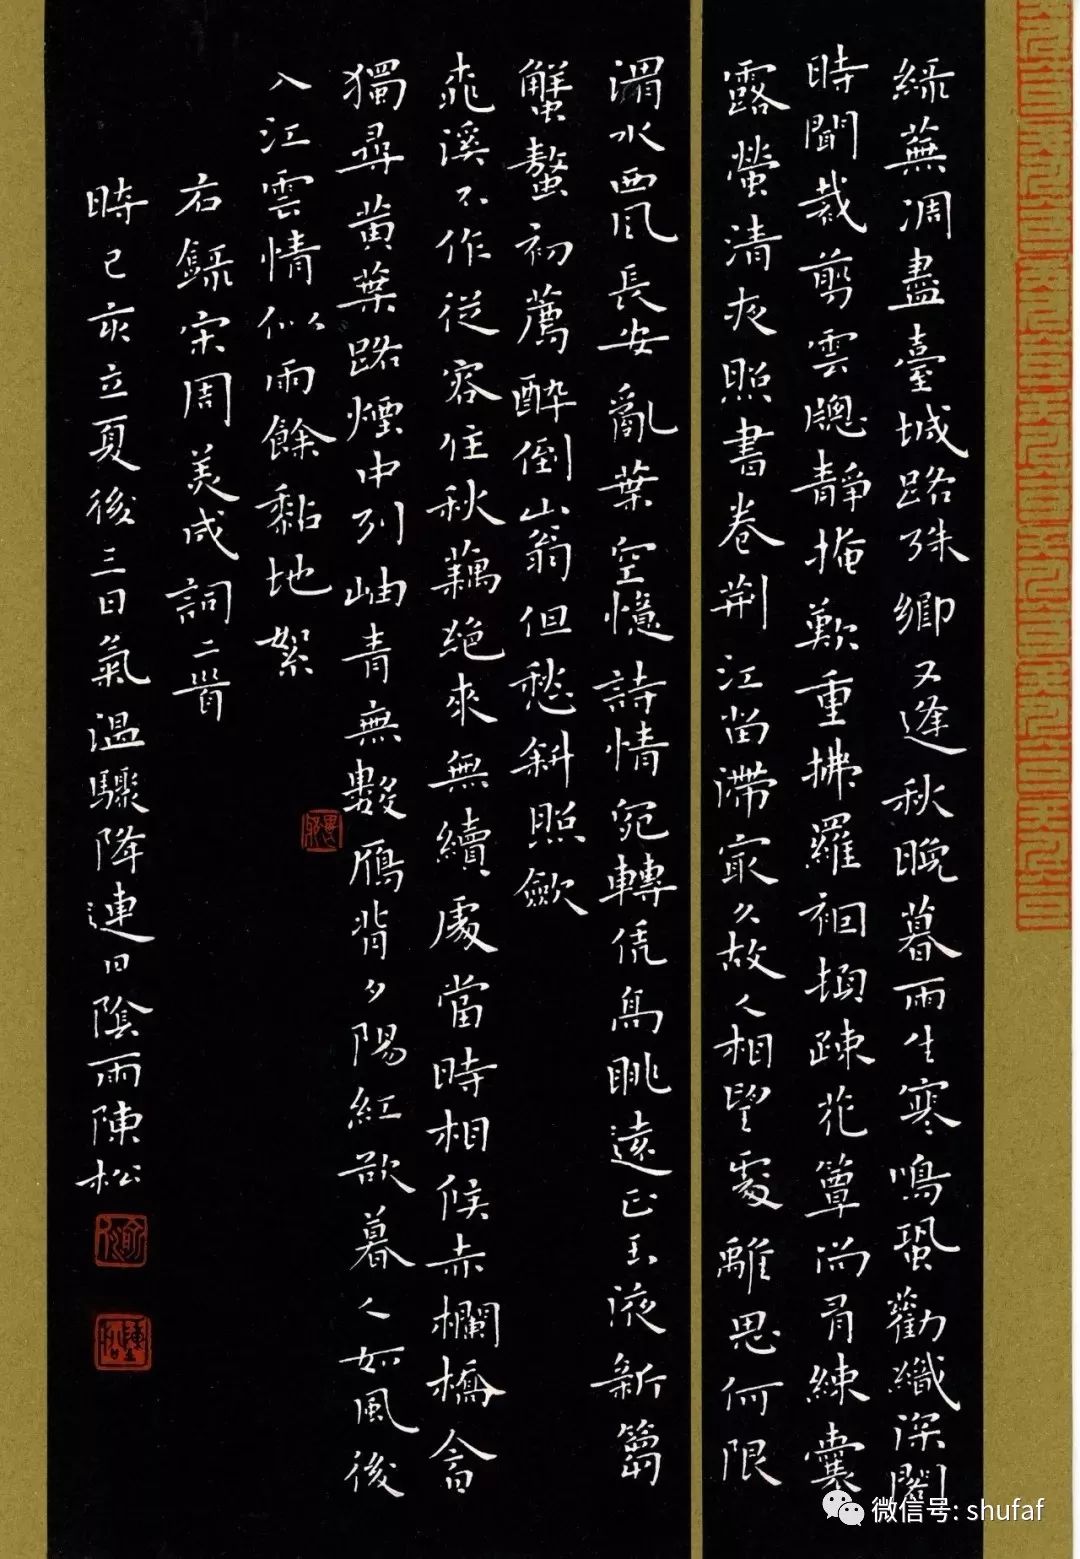 綠蕪凋盡臺城路殊鄉又逢秋晚暮雨生寒鳴蛩勸織深閣
時聞裁剪雲牕靜掩歎重拂羅裀頓疎花簟尚有練囊
露螢清夜照書卷荆江留滯最久故人相望處離思何限
渭水西風長安亂葉空憶詩情宛轉凭高眺遠正玉液新篘
蟹螯初薦醉倒山翁但愁斜照歛
桃溪不作從容住秋藕絕來無續處當時相候赤欄橋今日
獨尋黃葉路煙中列岫青無數雁背夕陽紅欲暮人如風後
入江雲情似雨餘黏地絮
右錄宋周美成詞二首
時己亥立夏後三日氣溫驟降連日陰雨陳松
微信号: shufaf